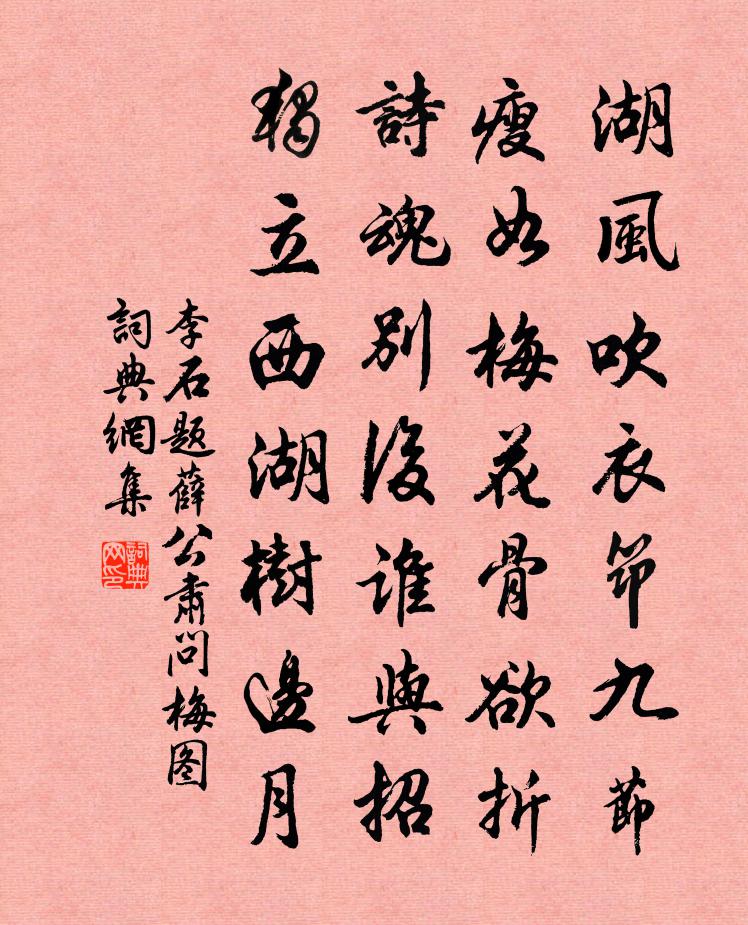 湖風吹衣筇九節
瘦如梅花骨欲折
詩魂別後誰與招
獨立西湖樹邊月
李石题薛公肃问梅图
詞典網集
詞典网印